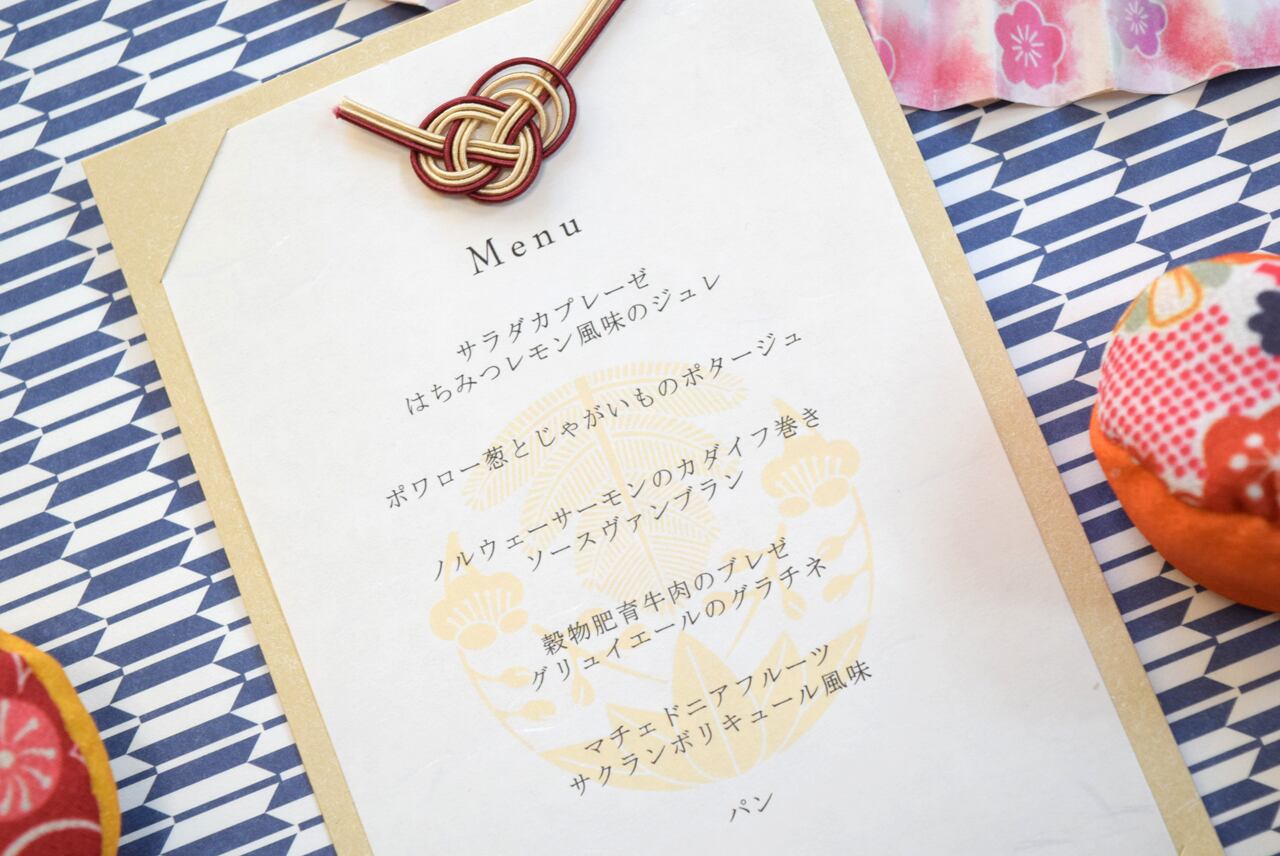 Menu
サラダカプレーゼ
はちみつレモン風味のジュレ
ポワロー葱とじゃがいものポタージュ
ノルウェーサーモンのカダイフ巻き
ソースヴァンブラン
穀物肥育牛肉のブレゼ
グリュイエールのグラチネ
マチェドニアフルーツ
サクランボリキュール風味
パン